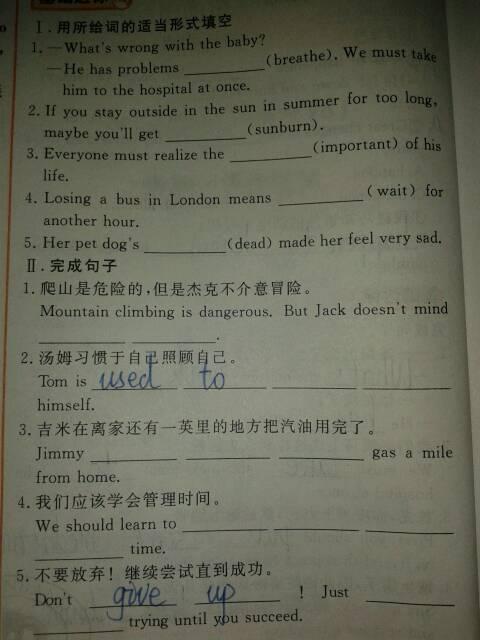 Ⅰ.用所给词的适当形式填空
1. —What's wrong with the baby?
—He has problems ________ (breathe). We must take
him to the hospital at once.
2. If you stay outside in the sun in summer for too long,
maybe you'll get ________ (sunburn).
3. Everyone must realize the ________ (important) of his
life.
4. Losing a bus in London means ________ (wait) for
another hour.
5. Her pet dog's ________ (dead) made her feel very sad.
Ⅱ.完成句子
1. 爬山是危险的,但是杰克不介意冒险。
Mountain climbing is dangerous. But Jack doesn't mind
________ ________.
2. 汤姆习惯于自己照顾自己。
Tom is used to ________ ________
himself.
3. 吉米在离家还有一英里的地方把汽油用完了。
Jimmy ________ ________ ________ gas a mile
from home.
4. 我们应该学会管理时间。
We should learn to ________ ________ ________
________ time.
5. 不要放弃!继续尝试直到成功。
Don't give up ! Just ________
________ trying until you succeed.